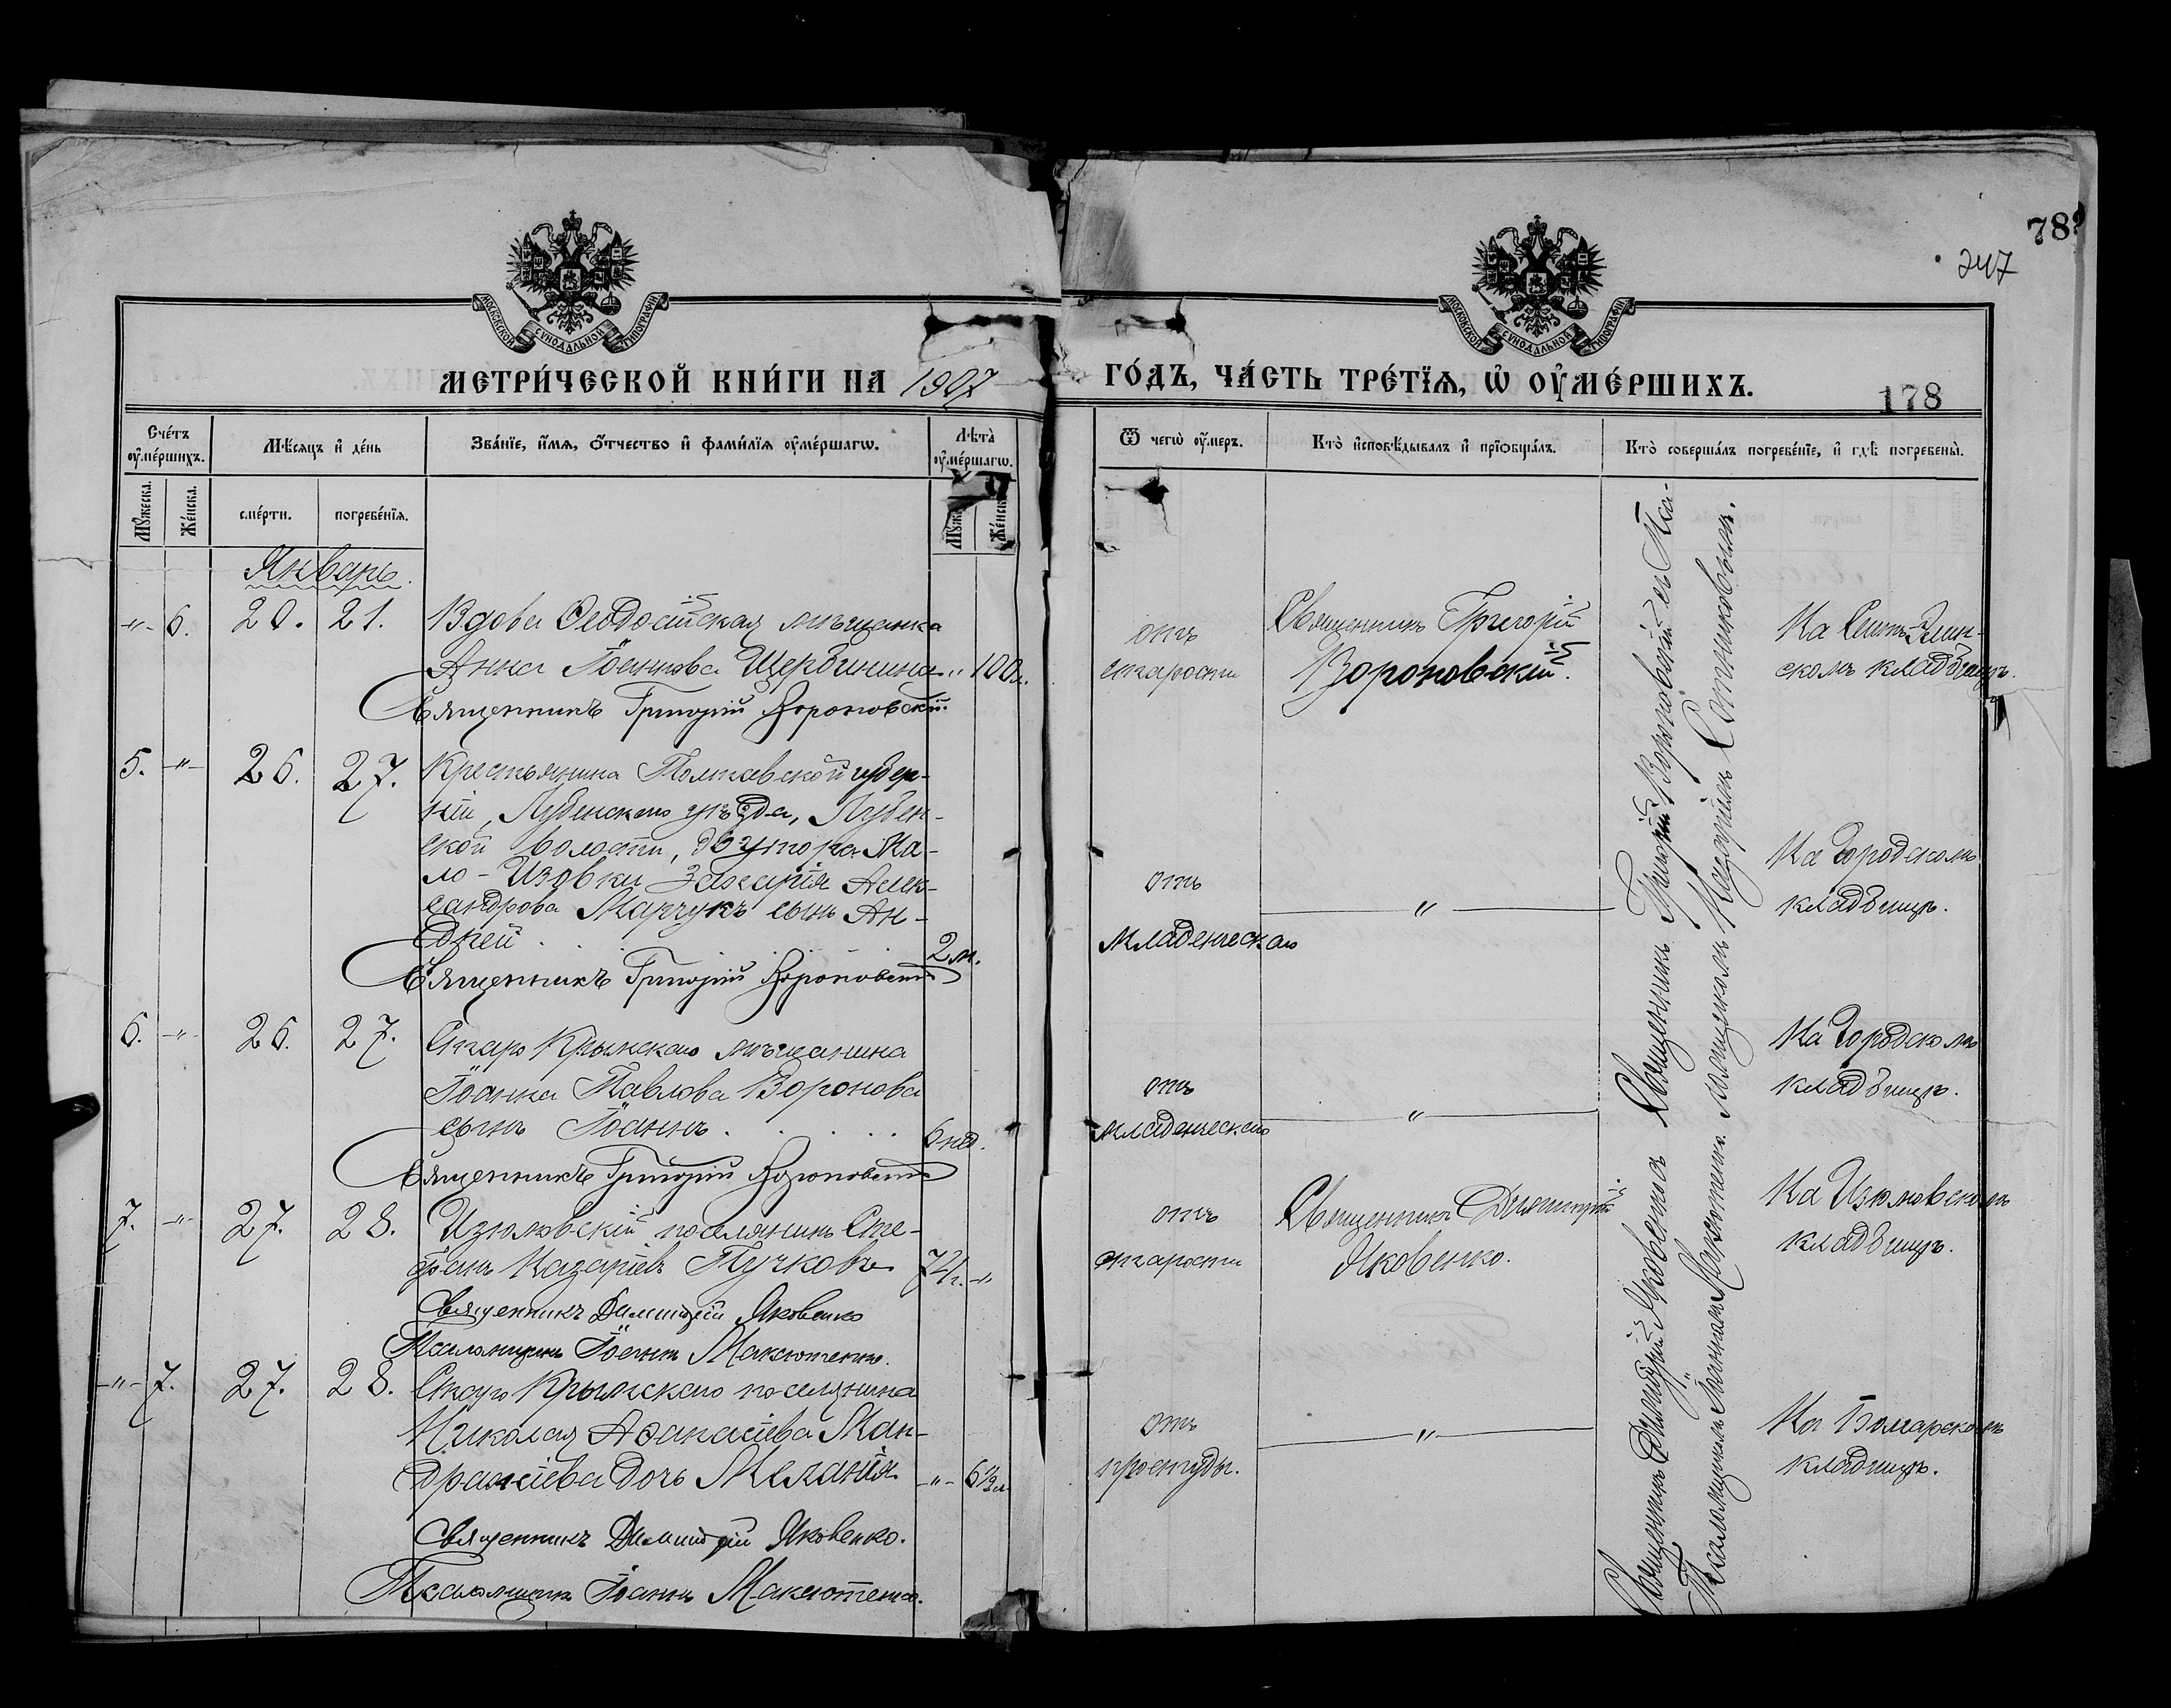 78
247
МОСКОВСКОЙ СУНОДАЛЬНОЙ ТИПОГРАФІИ
МОСКОВСКОЙ СУНОДАЛЬНОЙ ТИПОГРАФІИ
МЕТРИ́ЧЕСКОЙ КНИ́ГИ НА 1907 ГО́ДЪ, ЧА́СТЬ ТРЕ́ТЇѦ, Ѡ҆ ОУ҆МЕ́РШИХЪ.
178
Сче́тъ оу҆ме́ршихъ.
Мѣ́сяцъ и҆ де́нь
Зва́нїе, и҆́мѧ, ѻ҆́тчество и҆ фами́лїѧ оу҆ме́ршагѡ.
Лѣ́та̀ оу҆ме́ршагѡ.
Ѿ чегѡ̀ оу҆́меръ.
Кто̀ и҆сповѣ́дывалъ и҆ прїѻбща́лъ.
Кто̀ соверша́лъ погребе́нїе, и҆ гдѣ̀ погребены̀.
Мꙋ́жеска.
Же́нска.
сме́рти.
погребе́нїѧ.
Же́нска
Январь.
-"- 6. 20. 21. Вдова Ѳеодосійская мѣщанка
Анна Іоаннова Щербинина " 100 л.
Священникъ Григорій Вороновскій.
отъ
старости
Священникъ Григорій
Вороновскій.
скомъ кладбищѣ.
5. -"- 26. 27. Крестьянина Полтавской губер-
ніи, Лубенскаго уѣзда, Лубен-
ской волости, хутора Ма-
ло-Изовки Захарія Алек-
сандрова Марчукъ сынъ Ан-
дрей . . . . 2 м.
Священникъ Григорій Вороновскій
отъ
младенческаго
"
На Городскомъ
кладбищѣ.
6. -"- 26. 27. Старо Крымскаго мѣщанина
Іоанна Павлова Воронова
сынъ Іоаннъ . . . . 6 нед.
Священникъ Григорій Вороновскій
отъ
младенческаго
"
На Городскомъ
кладбищѣ.
7. -"- 27. 28. Изюмовскій поселянинъ Сте-
фанъ Назаріевъ Пучковъ 72 л. -"
Священникъ Димитрій Яковенко
Псаломщикъ Іоаннъ Максютенко.
отъ
старости
Священникъ Димитрій
Яковенко.
На Изюмовскомъ
кладбищѣ.
-"- 7. 27. 28. Старо Крымскаго поселянина
Николая Аѳанасіева Ман-
дражіева дочь Меланія -"- 6½ м
Священникъ Димитрій Яковенко.
Псаломщикъ Іоаннъ Максютенко.
отъ
простуды.
"
На Болгарскомъ
кладбищѣ.
Священникъ Григорій Вороновскій съ Пса-
ломщикомъ Сотниковымъ.
Священникъ Димитрій Яковенко съ
Псаломщикомъ Іоанномъ Максютенко.